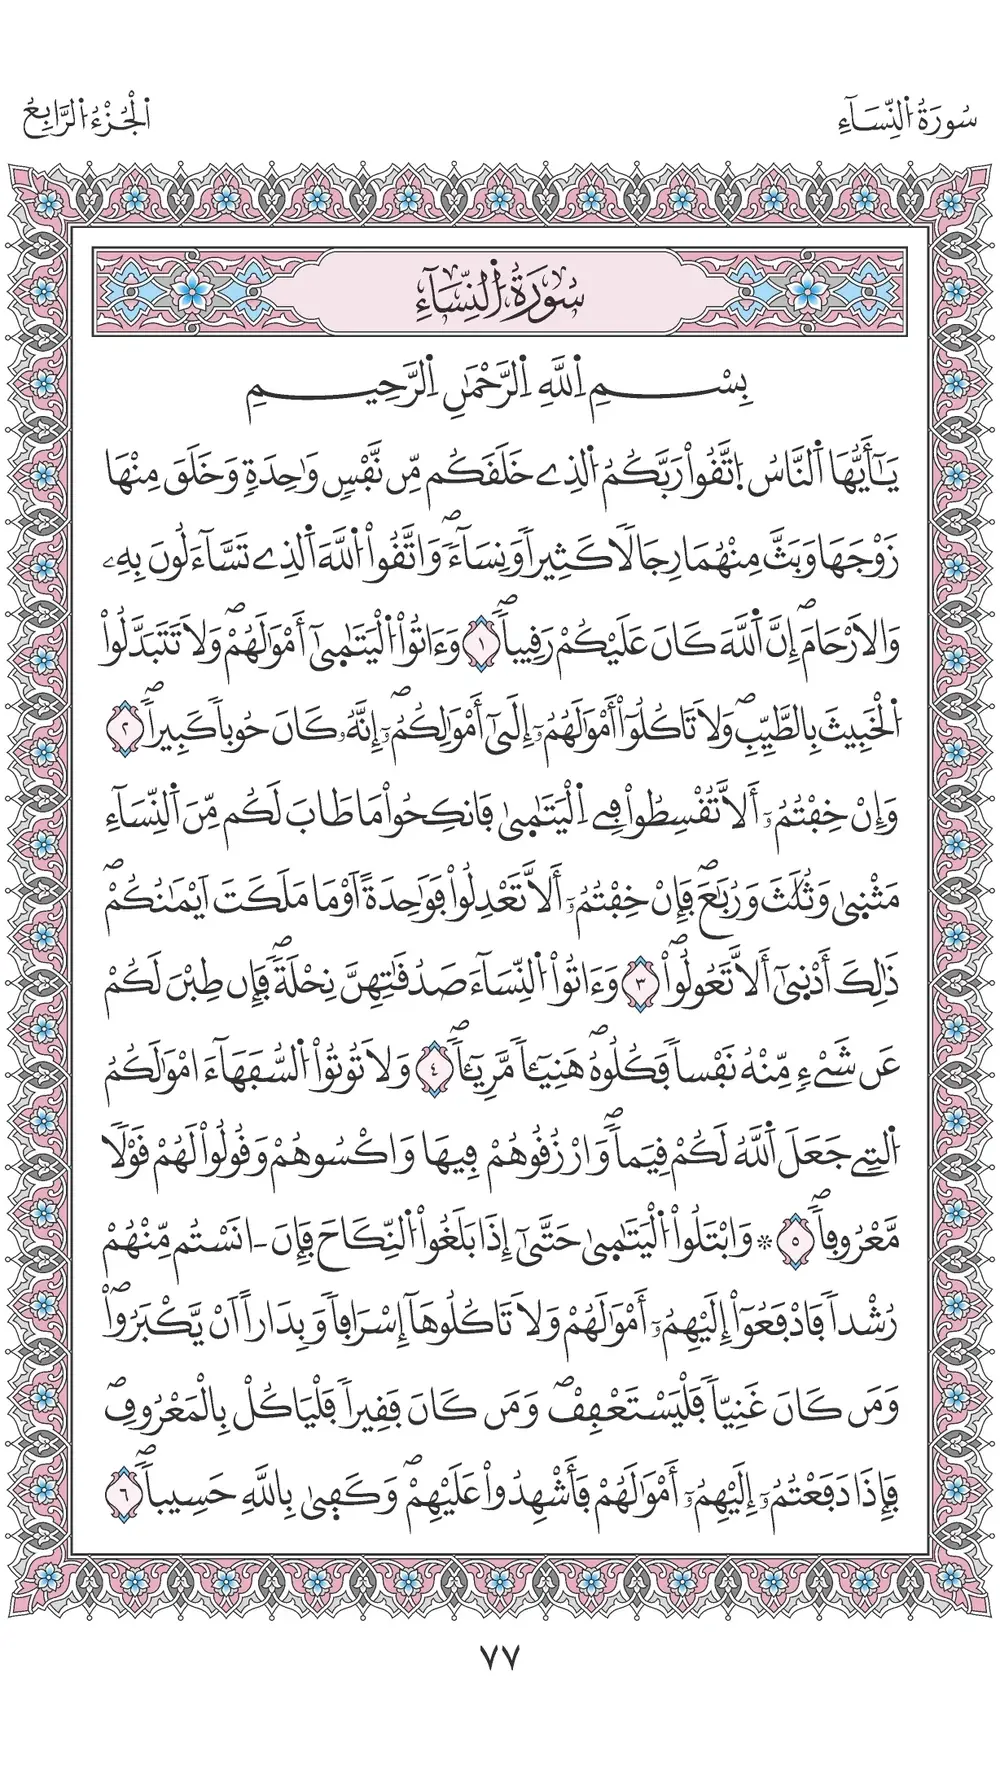 سُورَةُ اُ۬لنِّسَآءِ
اُ۬لْجُزْءُ اُ۬لرَّابِعُ
سُورَةُ اُ۬لنِّسَآءِ
بِسْمِ اِ۬للَّهِ اِ۬لرَّحْمَٰنِ اِ۬لرَّحِيمِ
يَٰٓأَيُّهَا اَ۬لنَّاسُ اُ۪تَّقُواْ رَبَّكُمُ اُ۬لذِے خَلَقَكُم مِّن نَّفْسٖ وَٰحِدَةٖ وَخَلَقَ مِنْهَا
زَوْجَهَا وَبَثَّ مِنْهُمَا رِجَالٗا كَثِيراٗ وَنِسَآءٗۖ وَاتَّقُواْ اُ۬للَّهَ اَ۬لذِے تَسَّآءَلُونَ بِهِۦ
وَالَارْحَامَۖ إِنَّ اَ۬للَّهَ كَانَ عَلَيْكُمْ رَقِيباٗۖ ١ وَءَاتُواْ اُ۬لْيَتَٰم۪ىٰٓ أَمْوَٰلَهُمْۖ وَلَا تَتَبَدَّلُواْ
اُ۬لْخَبِيثَ بِالطَّيِّبِۖ وَلَا تَاكُلُوٓاْ أَمْوَٰلَهُمُۥٓ إِلَىٰٓ أَمْوَٰلِكُمُۥٓۖ إِنَّهُۥ كَانَ حُوباٗ كَبِيراٗۖ ٢
وَإِنْ خِفْتُمُۥٓ أَلَّا تُقْسِطُواْ فِے اِ۬لْيَتَٰم۪ىٰ فَانكِحُواْ مَا طَابَ لَكُم مِّنَ اَ۬لنِّسَآءِ
مَثْن۪ىٰ وَثُلَٰثَ وَرُبَٰعَۖ فَإِنْ خِفْتُمُۥٓ أَلَّا تَعْدِلُواْ فَوَٰحِدَةً اَوْ مَا مَلَكَتَ اَيْمَٰنُكُمْۖ
ذَٰلِكَ أَدْن۪ىٰٓ أَلَّا تَعُولُواْۖ ٣ وَءَاتُواْ اُ۬لنِّسَآءَ صَدُقَٰتِهِنَّ نِحْلَةٗۖ فَإِن طِبْنَ لَكُمْ
عَن شَےْءٖ مِّنْهُ نَفْساٗ فَكُلُوهُۖ هَنِيٓـٔاٗ مَّرِيٓـٔاٗۖ ٤ وَلَا تُوتُواْ اُ۬لسُّفَهَآءَ امْوَٰلَكُمُ
اُ۬لتِے جَعَلَ اَ۬للَّهُ لَكُمْ قِيَماٗۖ وَارْزُقُوهُمْ فِيهَا وَاكْسُوهُمْ وَقُولُواْ لَهُمْ قَوْلٗا
مَّعْرُوفاٗۖ ٥ ۞ وَابْتَلُواْ اُ۬لْيَتَٰم۪ىٰ حَتَّىٰٓ إِذَا بَلَغُواْ اُ۬لنِّكَاحَ فَإِنَ اٰنَسْتُم مِّنْهُمْ
رُشْداٗ فَادْفَعُوٓاْ إِلَيْهِمُۥٓ أَمْوَٰلَهُمْ وَلَا تَاكُلُوهَآ إِسْرَافاٗ وَبِدَاراً اَنْ يَّكْبَرُواْۖ
وَمَن كَانَ غَنِيّاٗ فَلْيَسْتَعْفِفْۖ وَمَن كَانَ فَقِيراٗ فَلْيَاكُلْ بِالْمَعْرُوفِۖ
فَإِذَا دَفَعْتُمُۥٓ إِلَيْهِمُۥٓ أَمْوَٰلَهُمْ فَأَشْهِدُواْ عَلَيْهِمْۖ وَكَف۪ىٰ بِاللَّهِ حَسِيباٗۖ ٦
٧٧